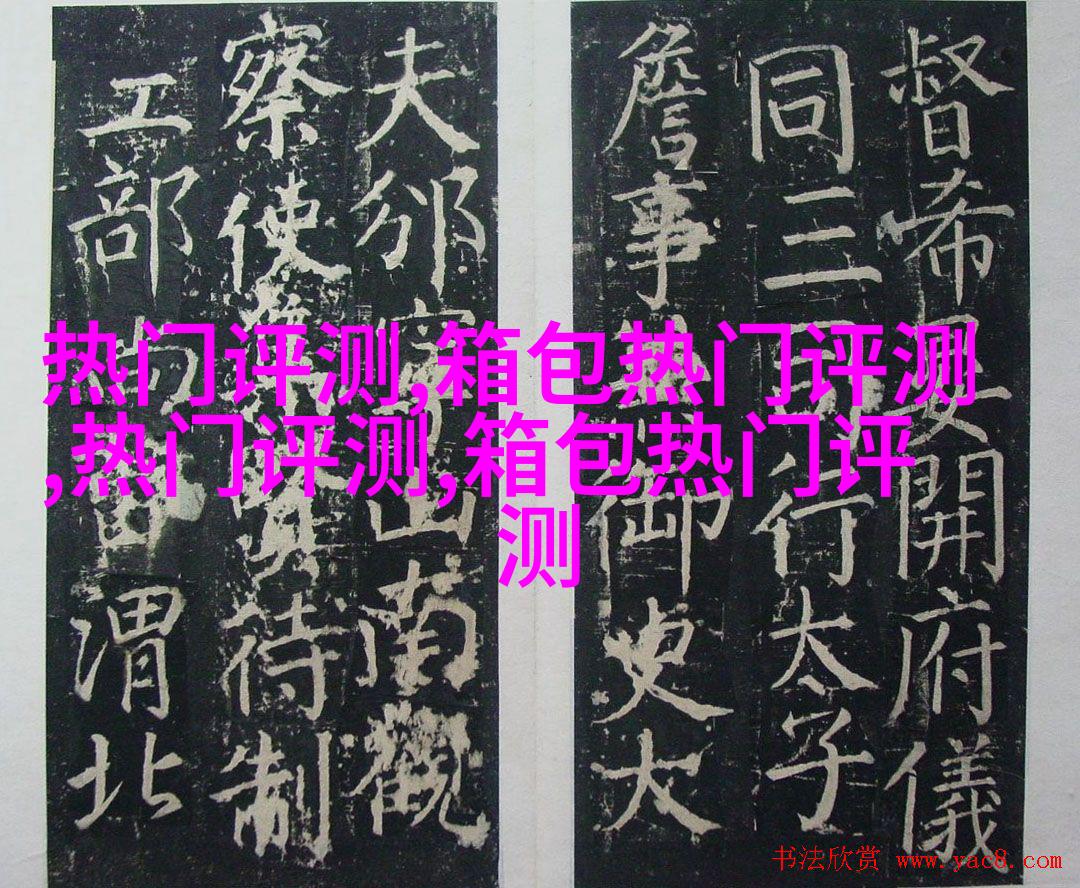 督希晏開府儀
同三司行太子
詹事兼御史大
夫邠寧山南觀
察使待制
工部尚書渭北
热门评测,箱包热门评测
,热门评测,箱包热门评
测
书法欣赏 www.yac8.com